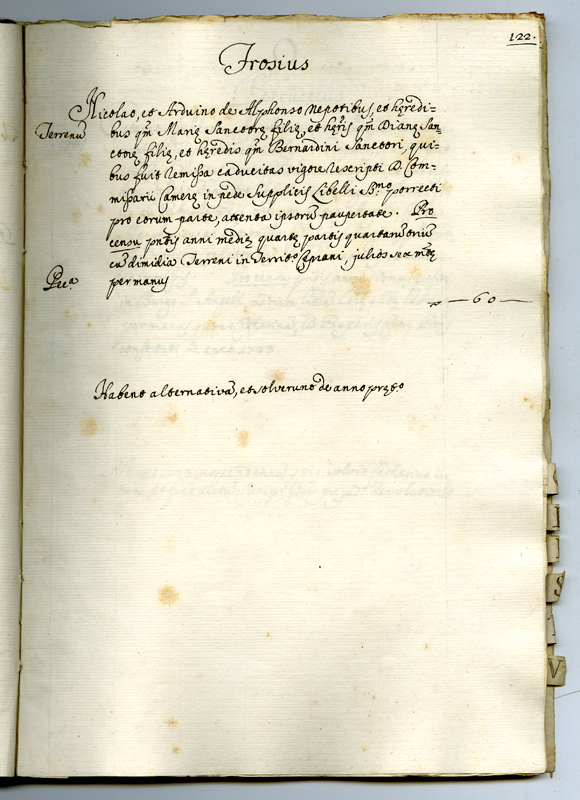 122.
Frosius
Nicolao, et Arduino de Alphonso Nepotibus, et hęredi=
Terrenũ
bus qm̃ Marię Sanctorę filię, et hęr̃is qm̃ Dianę San=
ctorę filię, et hęredis qm̃ Bernardini Sanctori, qui=
bus fuit remissa caducitas vigore rescripti D. Com=
missarii Camerę in pede Supplicis Libelli S.mo porrecti
pro eorum parte, attenta ipsorũ paupertate. Pro
censu pñtis anni medię quartę partis quartarũ trium
cũ dimidia Terreni in Territo Cepiani, julios sex mtę
Pec.a
per manus
60
Habent alternativã, et solverunt de anno pręt.o